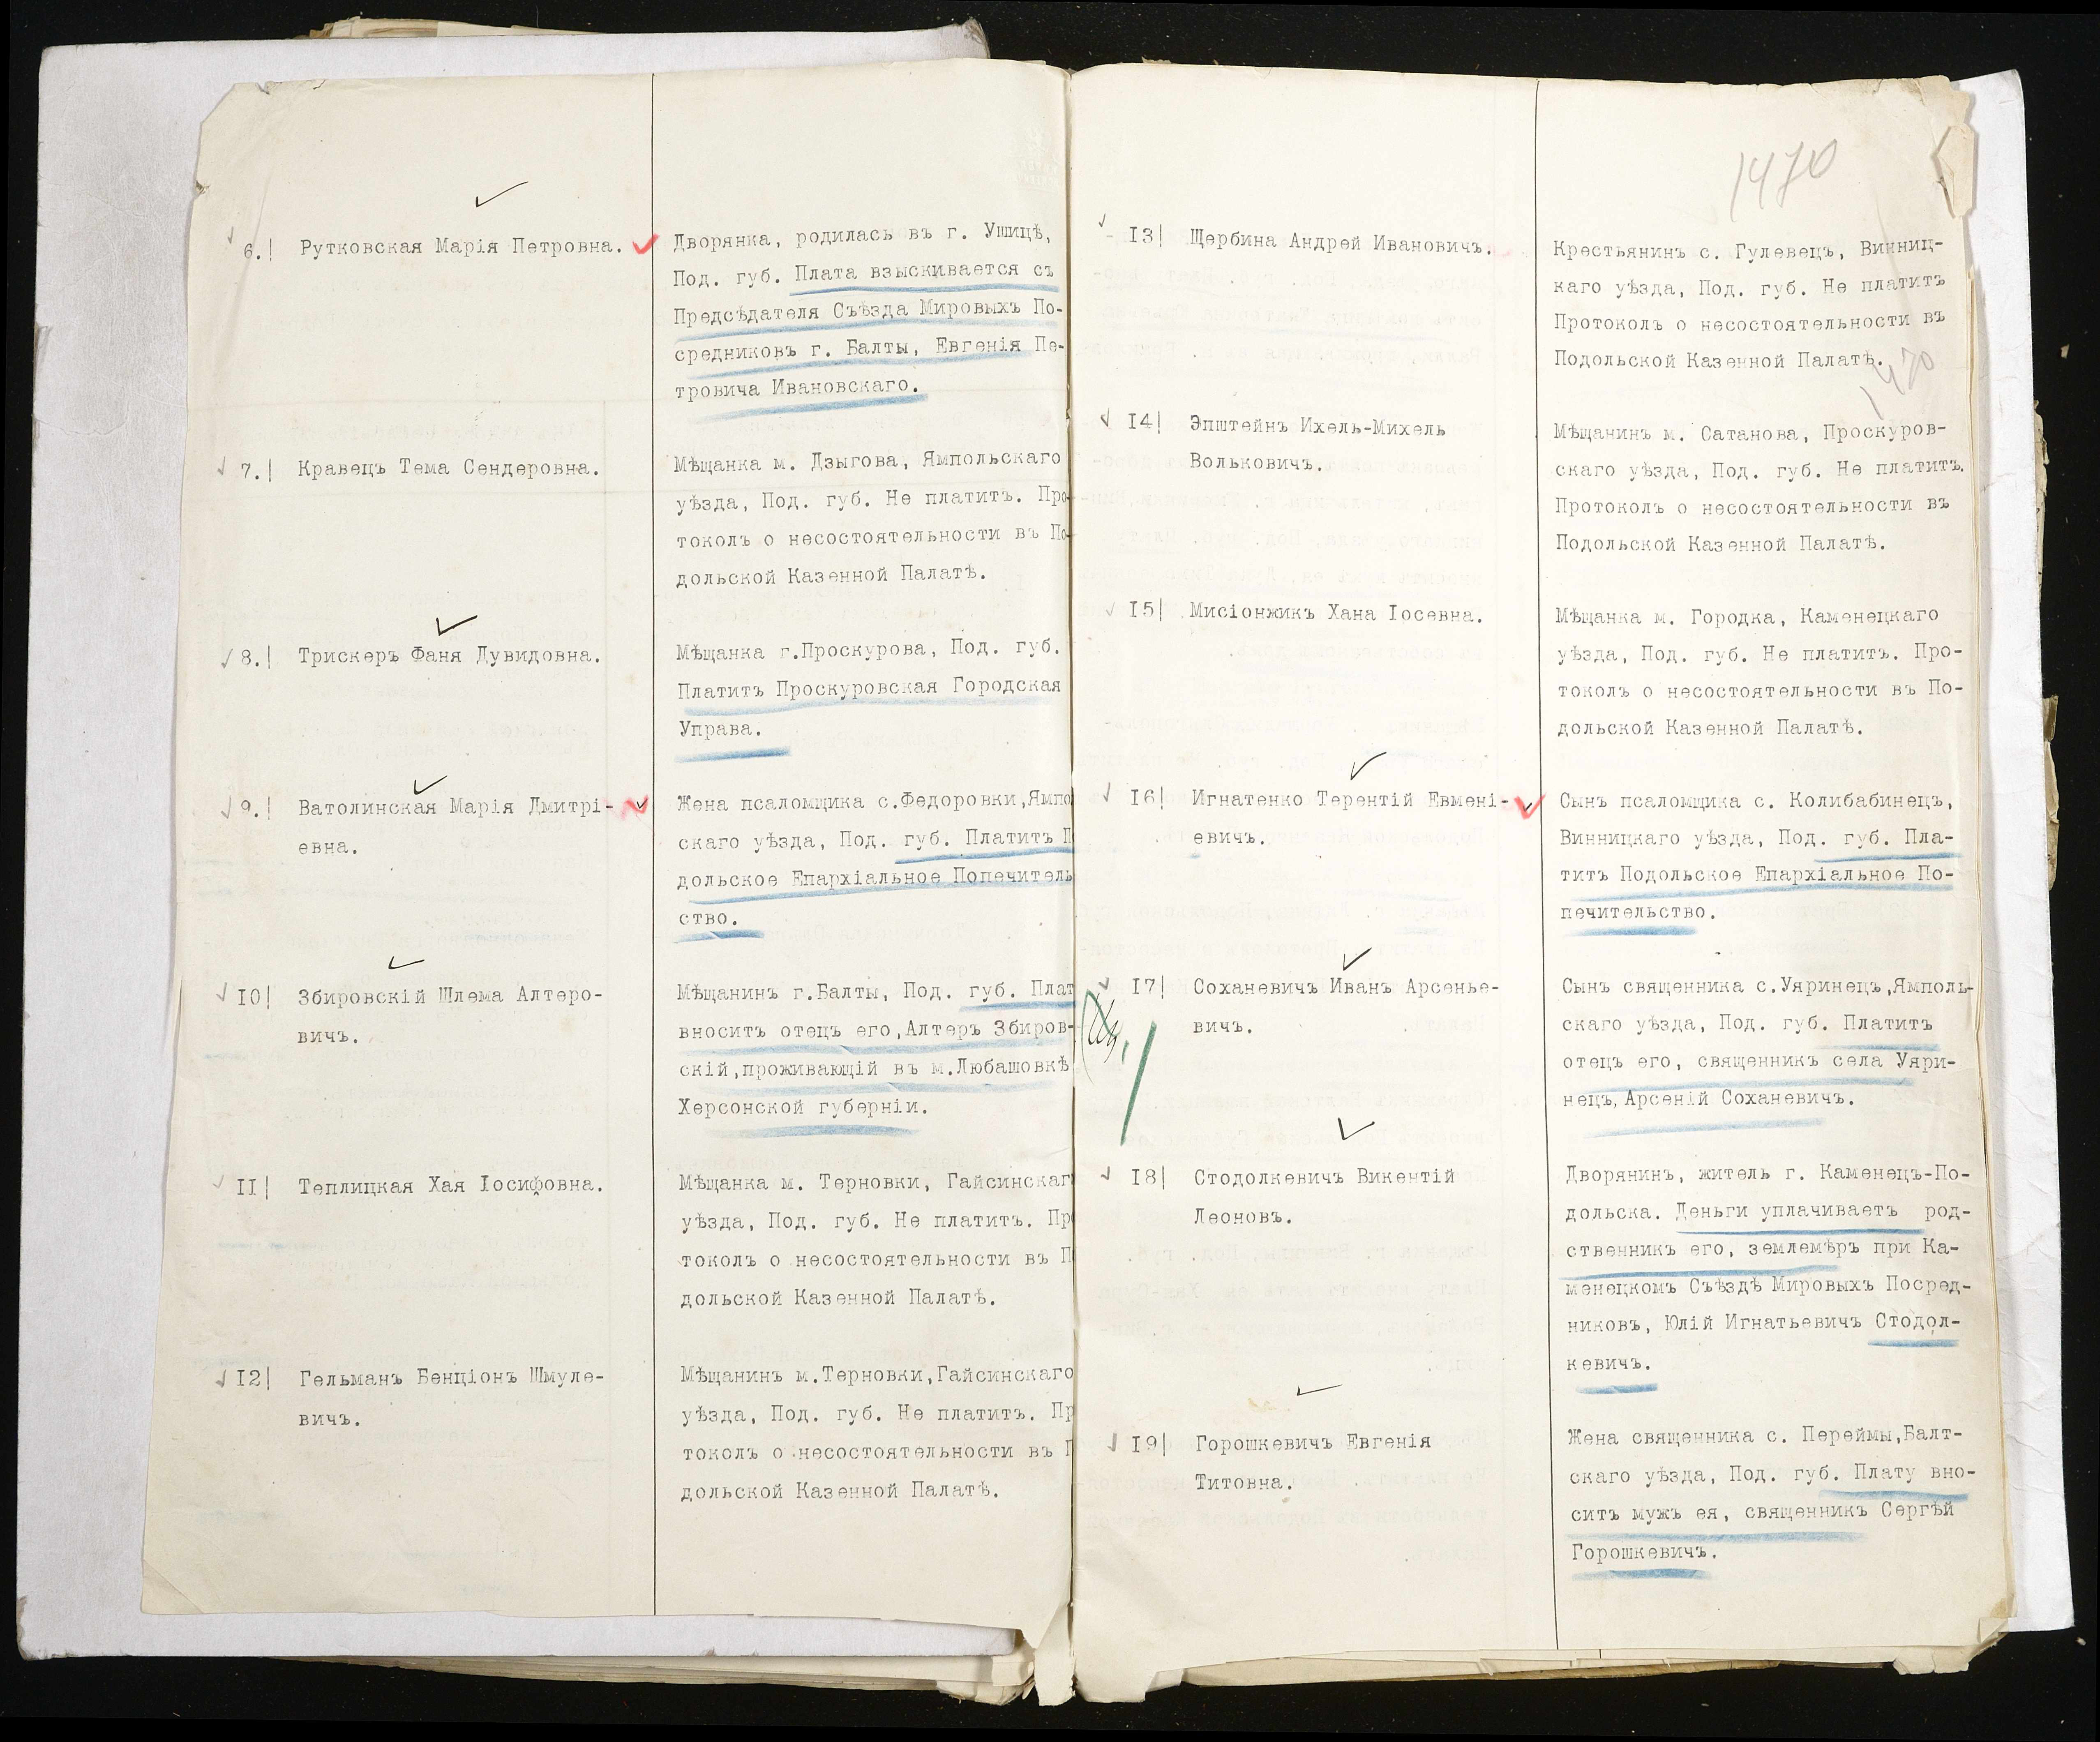 6.| Рутковская Марія Петровна.
Дворянка, родилась въ г. Ушицѣ,
Под. губ. Плата взыскивается съ
Предсѣдателя Съѣзда Мировыхъ По-
средниковъ г. Балты, Евгенія Пе-
тровича Ивановскаго.
7.| Кравецъ Тема Сендеровна.
Мѣщанка м. Дзыгова, Ямпольскаго
уѣзда, Под. губ. Не платитъ. Про
токолъ о несостоятельности въ По
дольской Казенной Палатѣ.
8.| Трискеръ Фаня Дувидовна.
Мѣщанка г.Проскурова, Под. губ.
Платитъ Проскуровская Городская
Управа.
9.| Ватолинская Марія Дмитрі-
евна.
Жена псаломщика с.Федоровки,Ямпо
скаго уѣзда, Под. губ. Платитъ П
дольское Епархіальное Попечитель
ство.
10| Збировскій Шлема Алтеро-
вичъ.
Мѣщанинъ г.Балты, Под. губ. Плат
вноситъ отецъ его,Алтеръ Збиров-
скій,проживающій въ м.Любашовкѣ
Херсонской губерніи.
II| Теплицкая Хая Іосифовна.
Мѣщанка м. Терновки, Гайсинскаг
уѣзда, Под. губ. Не платитъ. Пр
токолъ о несостоятельности въ П
дольской Казенной Палатѣ.
I2| Гельманъ Бенціонъ Шмуле-
вичъ.
Мѣщанинъ м.Терновки,Гайсинскаго
уѣзда, Под. губ. Не платитъ. Пр
токолъ о несостоятельности въ П
дольской Казенной Палатѣ.
1470
I3| Щербина Андрей Ивановичъ.
Крестьянинъ с. Гулевецъ, Винниц-
каго уѣзда, Под. губ. Не платитъ
Протоколъ о несостоятельности въ
Подольской Казенной Палатѣ.
1470
I4| Эпштейнъ Ихель-Михель
Вольковичъ.
Мѣщанинъ м. Сатанова, Проскуров-
скаго уѣзда, Под. губ. Не платитъ.
Протоколъ о несостоятельности въ
Подольской Казенной Палатѣ.
I5| Мисіонжикъ Хана Іосевна.
Мѣщанка м. Городка, Каменецкаго
уѣзда, Под. губ. Не платитъ. Про-
токолъ о несостоятельности въ По-
дольской Казенной Палатѣ.
I6| Игнатенко Терентій Евмені-
евичъ.
Сынъ псаломщика с. Колибабинецъ,
Винницкаго уѣзда, Под. губ. Пла-
титъ Подольское Епархіальное По-
печительство.
I7| Соханевичъ Иванъ Арсенье-
вичъ.
Сынъ священника с.Уяринецъ,Ямполь-
скаго уѣзда, Под. губ. Платитъ
отецъ его, священникъ села Уяри-
нецъ,Арсеній Соханевичъ.
I8| Стодолкевичъ Викентій
Леоновъ.
Дворянинъ, житель г. Каменецъ-По-
дольска. Деньги уплачиваетъ род-
ственникъ его, землемѣръ при Ка-
менецкомъ Съѣздѣ Мировыхъ Посред-
никовъ, Юлій Игнатьевичъ Стодол-
кевичъ.
I9| Горошкевичъ Евгенія
Титовна.
Жена священника с. Переймы,Балт-
скаго уѣзда, Под. губ. Плату вно-
ситъ мужъ ея, священникъ Сергѣй
Горошкевичъ.